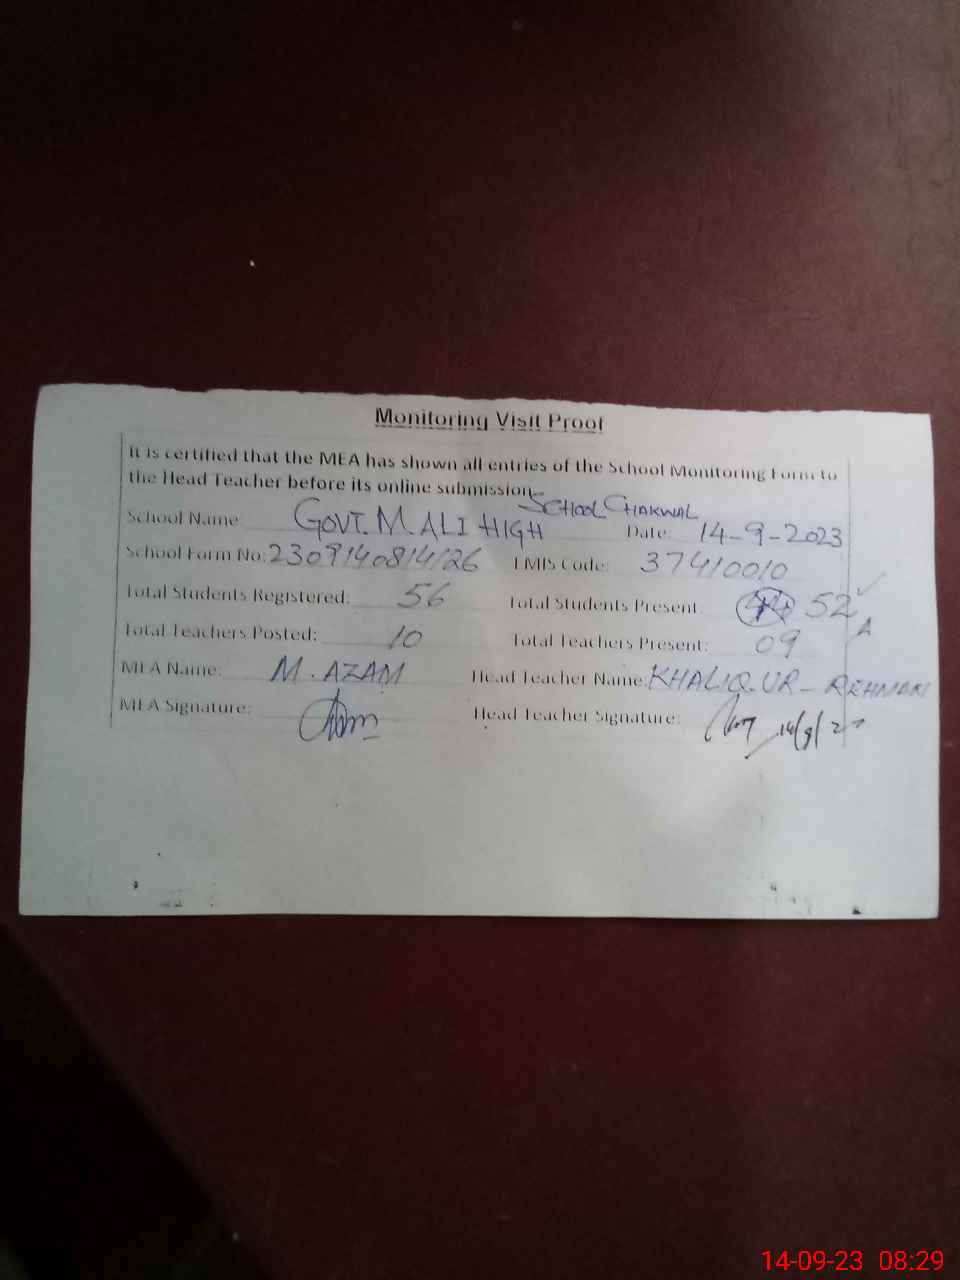 Monitoring Visit Proof
It is certified that the MEA has shown all entries of the School Monitoring Form to
the Head Teacher before its online submission.
School Name GOVT. M ALI HIGH SCHOOL CHAKWAL Date: 14-9-2023
School Form No: 2309140814126 EMIS Code: 37410010
Total Students Registered: 56 Total Students Present: 44 52
Total Teachers Posted: 10 Total Teachers Present: 09
MEA Name: M. AZAM Head Teacher Name: KHALIQ-UR-REHMAN
MEA Signature: Head Teacher Signature: 14/9/23
14-09-23 08:29